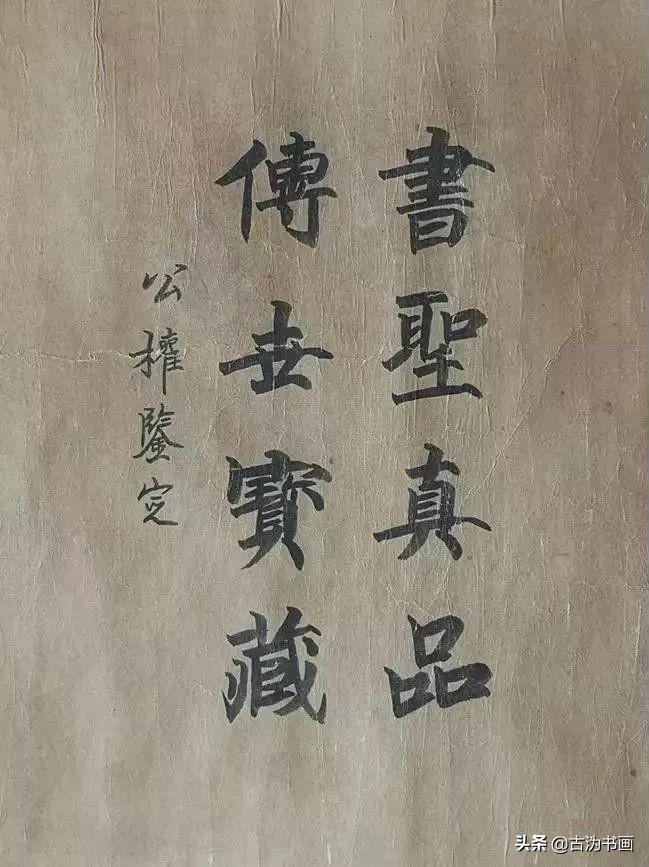 書聖真品
傳世寳藏
公權鑒定
头条 @古沩书画